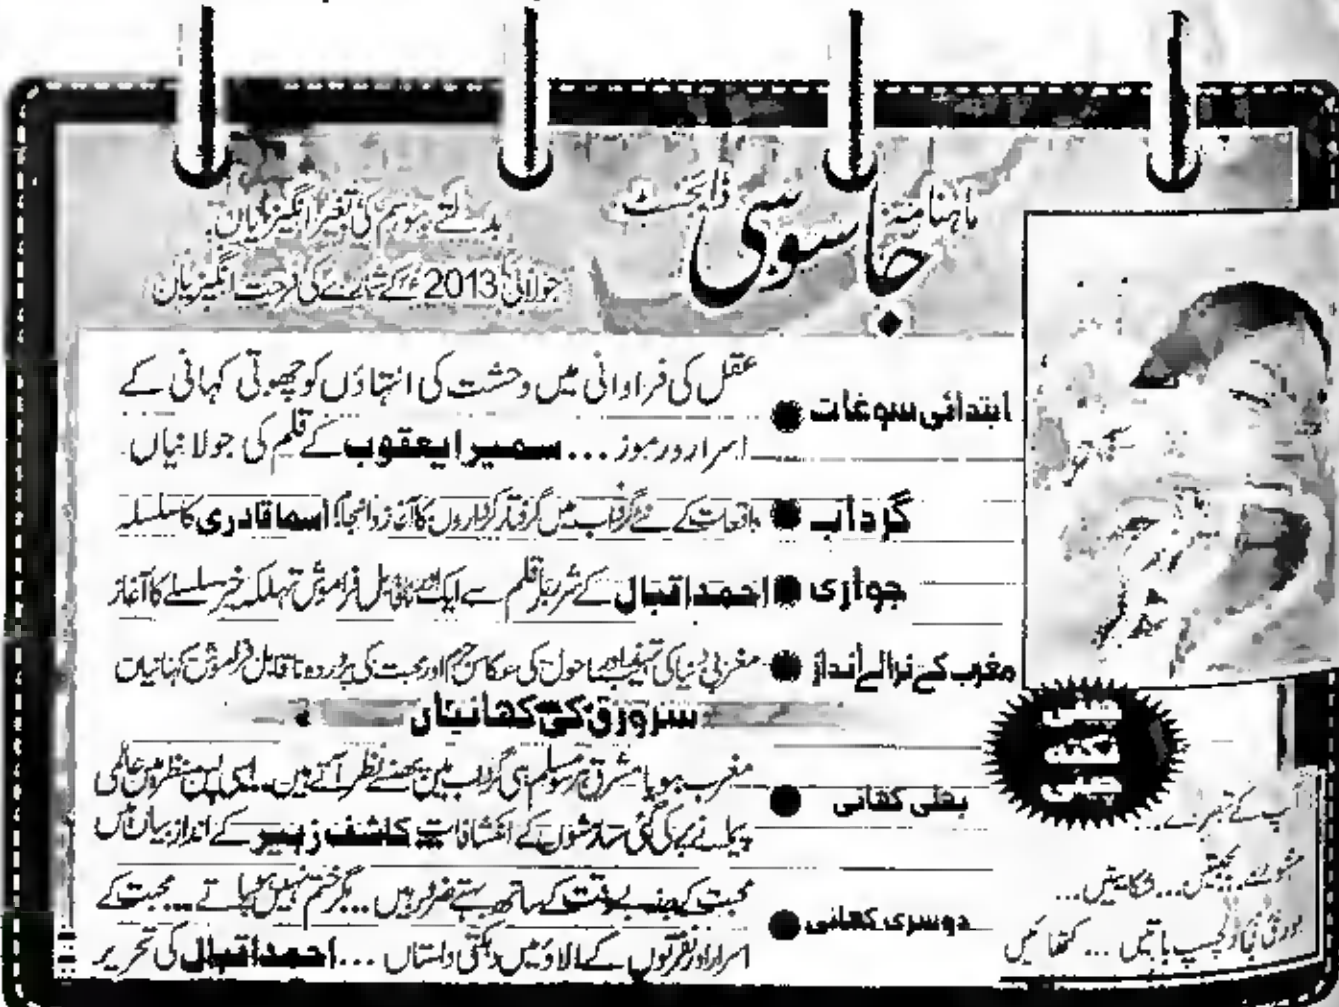 ماہنامہ جاسوسی ڈائجسٹ
بدلتے موسم کی تغیر انگیزیاں
جولائی 2013ء کے شمارے کی فرحت انگیزیاں
ابتدائی سوغات ● عقل کی فراوانی میں وحشت کی انتہاؤں کو چھوتی کہانی کے
اسرار و رموز ... سمیرا یعقوب کے قلم کی جولانیاں۔
گرداب ● واقعات کے نئے گرداب میں گرفتار کرداروں کا آغاز و انجام اسما قادری کا سلسلہ
جواری ● احمد اقبال کے شرربار قلم سے ایک اور ناقابل فراموش تہلکہ خیز سلسلے کا آغاز
مغرب کے نرالے انداز ● مغربی دنیا کی تہذیب اور ماحول کی عکاس جرم اور محبت کی پردرد ناقابل فراموش کہانیاں
سرورق کی کہانیاں
پہلی کہانی ● مغرب ہو یا مشرق ہر سو مسلم ہی گرداب میں پھنسے نظر آتے ہیں... اسی پس منظر میں عالمی
پیمانے پر کی گئی سازشوں کے انکشافات کاشف زبیر کے انداز بیان میں
دوسری کہانی ● محبت کے جذبے وقت کے ساتھ بہتے ضرور ہیں... مگر ختم نہیں ہو پاتے... محبت کے
اسرار اور نفرتوں کے الاؤ میں دہکتی داستاں ... احمد اقبال کی تحریر
چینی نکتہ چینی
آپ کے تبصرے...
مشورے... محبتیں... شکایتیں...
دلچسپ باتیں ... کتھائیں